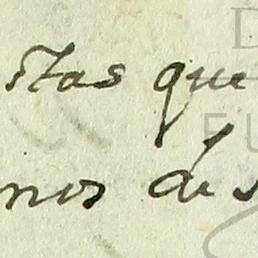 stas que
nos de s